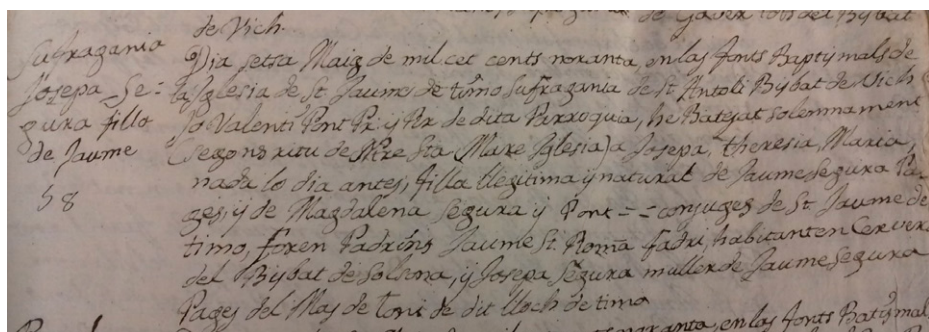 de Gaver tots del Bisbat
de Vich.
Sufragania
Josepa Se=
gura filla
de Jaume
58
Dia setse Maig de mil cet cents noranta, en las fonts Baptismals de
la Iglesia de St. Jaume de timo Sufragania de St. Antoli Bisbat de Vich
Jo Valentí Pont Pr. y Rr. de dita Parroquia, he Batejat solemnament
(segons ritu de Ntre Sta Mare Iglesia) a Josepa, theresia, Maria,
nada lo dia antes, filla llegitima y natural de Jaume Segura Pa-
ges, y de Magdalena Segura y Pont == conjuges de St. Jaume de
timo, foren Padrins Jaume St. Romá fadrí, habitant en Cervera
del Bisbat de Solsona, y Josepa Segura muller de Jaume Segura
Pages del Mas de toni de dit lloch de timo
noranta, en las fonts Batismal